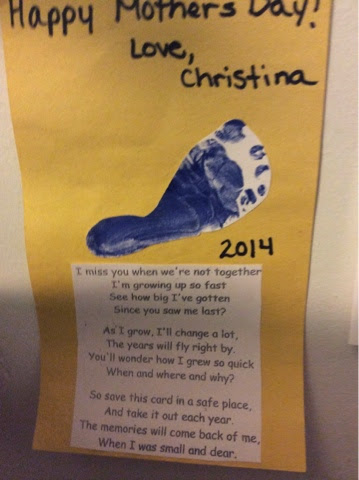 Happy Mothers Day!
Love,
Christina
2014
I miss you when we're not together
I'm growing up so fast
See how big I've gotten
Since you saw me last?
As I grow, I'll change a lot,
The years will fly right by.
You'll wonder how I grew so quick
When and where and why?
So save this card in a safe place,
And take it out each year.
The memories will come back of me,
When I was small and dear.